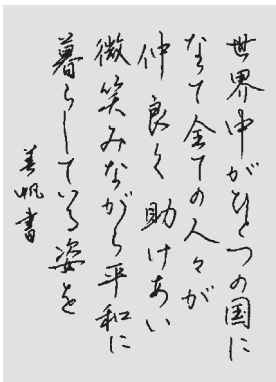 世界中がひとつの国に
なって全ての人々が
仲良く助けあい
微笑みながら平和に
暮らしている姿を
美帆書